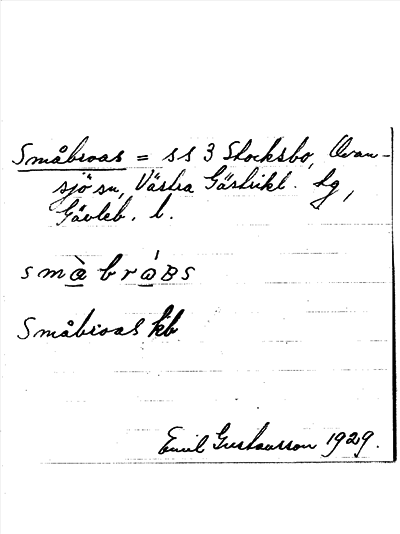 Småbroas = ss 3 Stocksbo, Ovan-
sjö sn, Västra Gästrikl. tg,
Gävleb. l.
smàbróBs
Småbroas kb
Emil Gustavsson 1929.